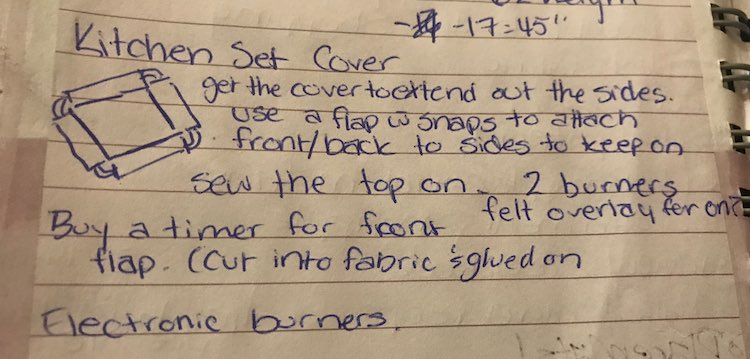 - -17=45"
Kitchen Set Cover
get the cover to extend out the sides.
use a flap w snaps to attach
front/back to sides to keep on
sew the top on. 2 burners
felt overlay for on?
Buy a timer for front
flap. (Cut into fabric & glued on
Electronic burners.